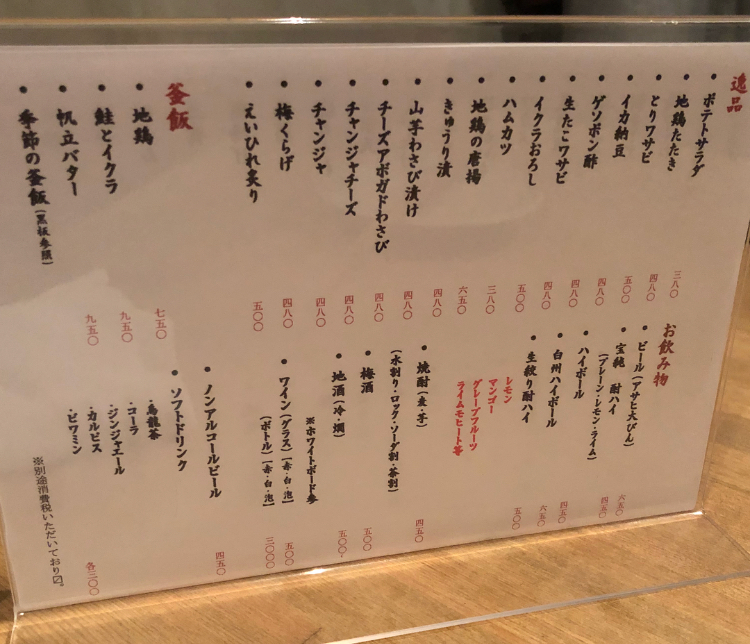 逸品
・ポテトサラダ 三八〇
・地鶏たたき 四八〇
・とりワサビ 五〇〇
・イカ納豆 四八〇
・ゲソポン酢 四八〇
・生たこワサビ 四八〇
・イクラおろし 五〇〇
・ハムカツ 三八〇
・地鶏の唐揚 六五〇
・きゅうり漬 四八〇
・山芋わさび漬け 四八〇
・チーズアボガドわさび 四八〇
・チャンジャチーズ 四八〇
・チャンジャ 四八〇
・梅くらげ 四八〇
・えいひれ炙り 五〇〇
釜飯
・地鶏 七五〇
・鮭とイクラ 九五〇
・帆立バター 九五〇
・季節の釜飯(黒板参照)
お飲み物
・ビール(アサヒ大びん) 六五〇
・宝純 酎ハイ 四五〇
(プレーン・レモン・ライム)
・ハイボール 四五〇
・白州ハイボール 六五〇
・生絞り酎ハイ 五〇〇
レモン
マンゴー
グレープフルーツ
ライムモヒート等
・焼酎(麦・芋) 四五〇
(水割り・ロック・ソーダ割・茶割)
・梅酒 五〇〇
・地酒(冷・燗) 五〇〇~
※ホワイトボード参
・ワイン(グラス)【赤・白・泡】 五〇〇
(ボトル)【赤・白・泡】 三〇〇〇
・ノンアルコールビール 四五〇
・ソフトドリンク
・烏龍茶
・コーラ
・ジンジャエール
・カルピス
・ビワミン 各三〇〇
※別途消費税いただいており〼。